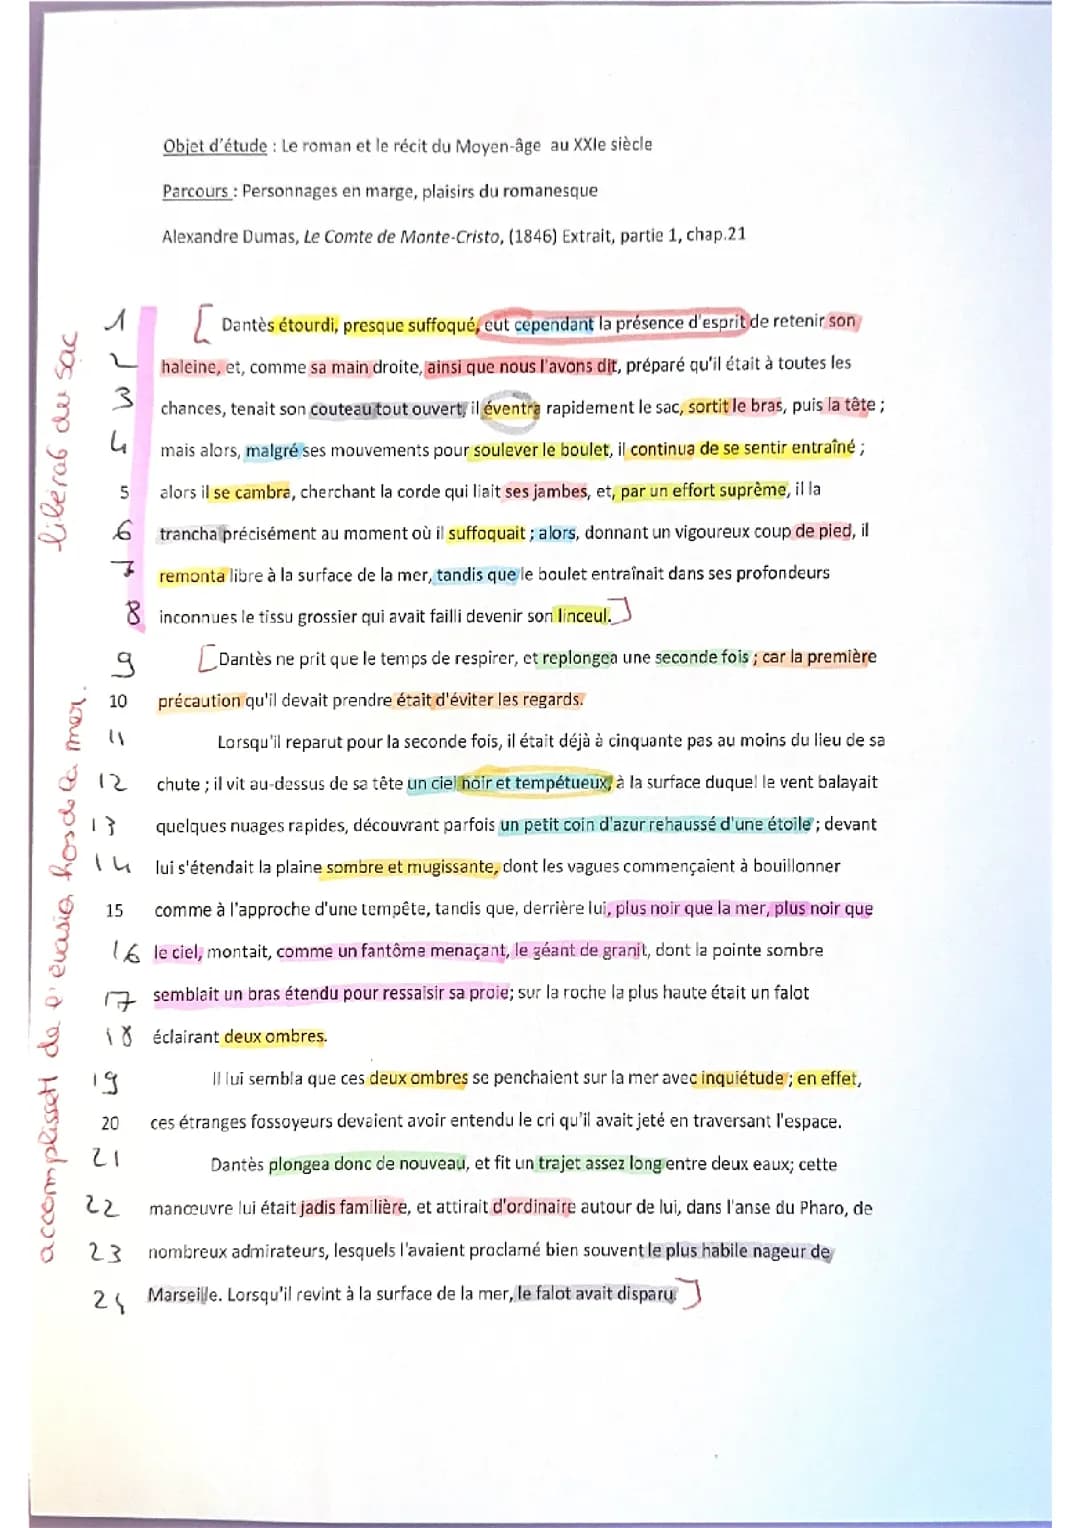 Objet d'étude : Le roman et le récit du Moyen-âge au XXIe siècle
Parcours : Personnages en marge, plaisirs du romanesque
Alexandre Dumas, Le Comte de Monte-Cristo, (1846) Extrait, partie 1, chap.21
libérat° du sac
1 [ Dantès étourdi, presque suffoqué, eut cependant la présence d'esprit de retenir son
2 haleine, et, comme sa main droite, ainsi que nous l'avons dit, préparé qu'il était à toutes les
3 chances, tenait son couteau tout ouvert, il éventra rapidement le sac, sortit le bras, puis la tête ;
4 mais alors, malgré ses mouvements pour soulever le boulet, il continua de se sentir entraîné ;
5 alors il se cambra, cherchant la corde qui liait ses jambes, et, par un effort suprême, il la
6 trancha précisément au moment où il suffoquait ; alors, donnant un vigoureux coup de pied, il
7 remonta libre à la surface de la mer, tandis que le boulet entraînait dans ses profondeurs
8 inconnues le tissu grossier qui avait failli devenir son linceul. ]
accomplisset de l'évasion hors de la mer.
9 [ Dantès ne prit que le temps de respirer, et replongea une seconde fois ; car la première
10 précaution qu'il devait prendre était d'éviter les regards.
11 Lorsqu'il reparut pour la seconde fois, il était déjà à cinquante pas au moins du lieu de sa
12 chute ; il vit au-dessus de sa tête un ciel noir et tempétueux, à la surface duquel le vent balayait
13 quelques nuages rapides, découvrant parfois un petit coin d'azur rehaussé d'une étoile ; devant
14 lui s'étendait la plaine sombre et mugissante, dont les vagues commençaient à bouillonner
15 comme à l'approche d'une tempête, tandis que, derrière lui, plus noir que la mer, plus noir que
16 le ciel, montait, comme un fantôme menaçant, le géant de granit, dont la pointe sombre
17 semblait un bras étendu pour ressaisir sa proie; sur la roche la plus haute était un falot
18 éclairant deux ombres.
19 Il lui sembla que ces deux ombres se penchaient sur la mer avec inquiétude ; en effet,
20 ces étranges fossoyeurs devaient avoir entendu le cri qu'il avait jeté en traversant l'espace.
21 Dantès plongea donc de nouveau, et fit un trajet assez long entre deux eaux; cette
22 manœuvre lui était jadis familière, et attirait d'ordinaire autour de lui, dans l'anse du Pharo, de
23 nombreux admirateurs, lesquels l'avaient proclamé bien souvent le plus habile nageur de
24 Marseille. Lorsqu'il revint à la surface de la mer, le falot avait disparu. ]